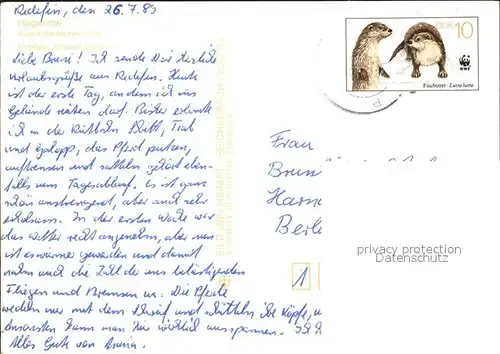 Redefin, den 26.7.89
Liebe Bruni! Ich sende Dir herzliche
Urlaubsgrüße aus Redefin. Heute
ist der erste Tag, an dem ich ins
Gelände reiten darf. Bisher erlernte
ich in der Reitbahn Schritt, Trab
und Galopp, das Pferd putzen,
auftrensen und satteln gehört eben-
falls zum Tagesablauf. Es ist ganz
schön anstrengend, aber auch sehr
erholsam. In der ersten Woche war
das Wetter recht angenehm, aber nun
ist es wärmer geworden und damit
nahm auch die Zahl der uns belästigenden
Fliegen und Bremsen zu. Die Pferde
wedeln nur mit dem Schweif und schütteln ihre Köpfe,
Ansonsten kann man hier wirklich ausspannen.
Alles Gute von
DDR 10
WWF
Fischotter - Lutra lutra
Frau
Brun
Berl
1
privacy protection
Datenschutz